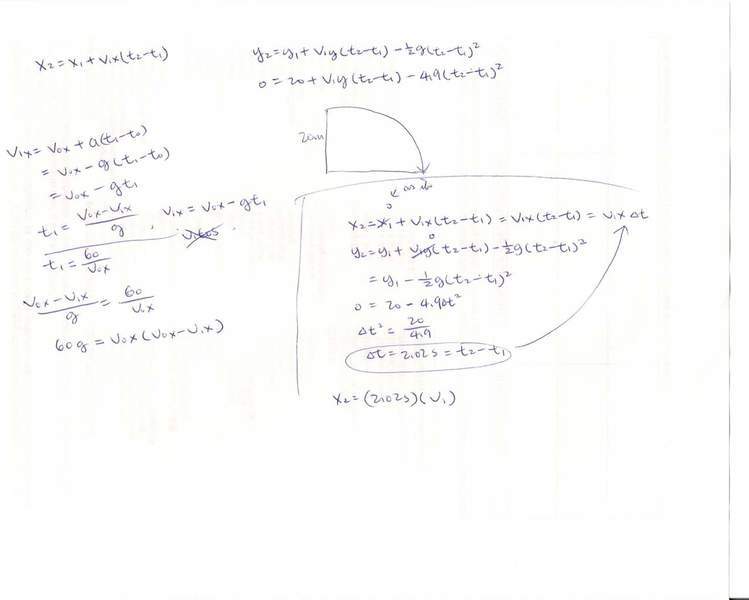 x₂ = x₁ + v₁x(t₂-t₁)
y₂ = y₁ + v₁y(t₂-t₁) - ½g(t₂-t₁)²
0 = 20 + v₁y(t₂-t₁) - 4.9(t₂-t₁)²
v₁x = v₀x + a(t₁-t₀)
= v₀x - g(t₁-t₀)
= v₀x - gt₁
t₁ = (v₀x-v₁x)/g , v₁x = v₀x - gt₁
t₁ = 60/v₀x
(v₀x-v₁x)/g = 60/v₁x
60g = v₀x(v₀x-v₁x)
20m
0
x₂ = x₁ + v₁x(t₂-t₁) = v₁x(t₂-t₁) = v₁xΔt
0
y₂ = y₁ + v₁y(t₂-t₁) - ½g(t₂-t₁)²
= y₁ - ½g(t₂-t₁)²
0 = 20 - 4.9Δt²
Δt² = 20/4.9
Δt = 2.02s = t₂-t₁
x₂ = (2.02s)(v₁)